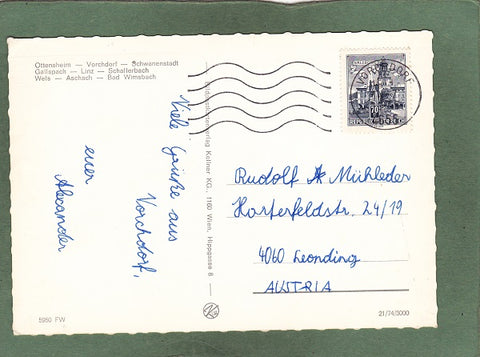 Ottensheim — Vorchdorf — Schwanenstadt
Gallspach — Linz — Schallerbach
Wels — Aschach — Bad Wimsbach
Viele Grüße aus
Vorchdorf,
euer
Alexander
Kellner KG., 1160 Wien, Hippgasse 6
VORCHDORF
Rudolf A Mühleder
Harterfeldstr. 24/19
4060 Leonding
AUSTRIA
5950 FW
21/74/5000